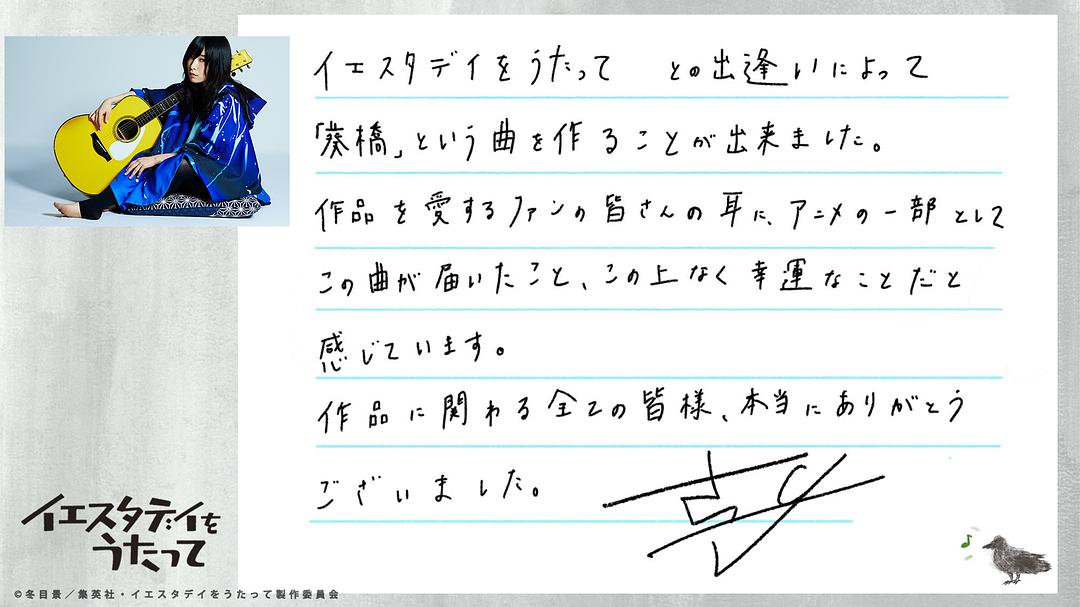 イエスタデイをうたって との出逢いによって
「葵橋」という曲を作ることが出来ました。
作品を愛するファンの皆さんの耳に、アニメの一部として
この曲が届いたこと、この上なく幸運なことだと
感じています。
作品に関わる全ての皆様、本当にありがとう
ございました。
イエスタデイを
うたって
©冬目景／集英社・イエスタデイをうたって製作委員会